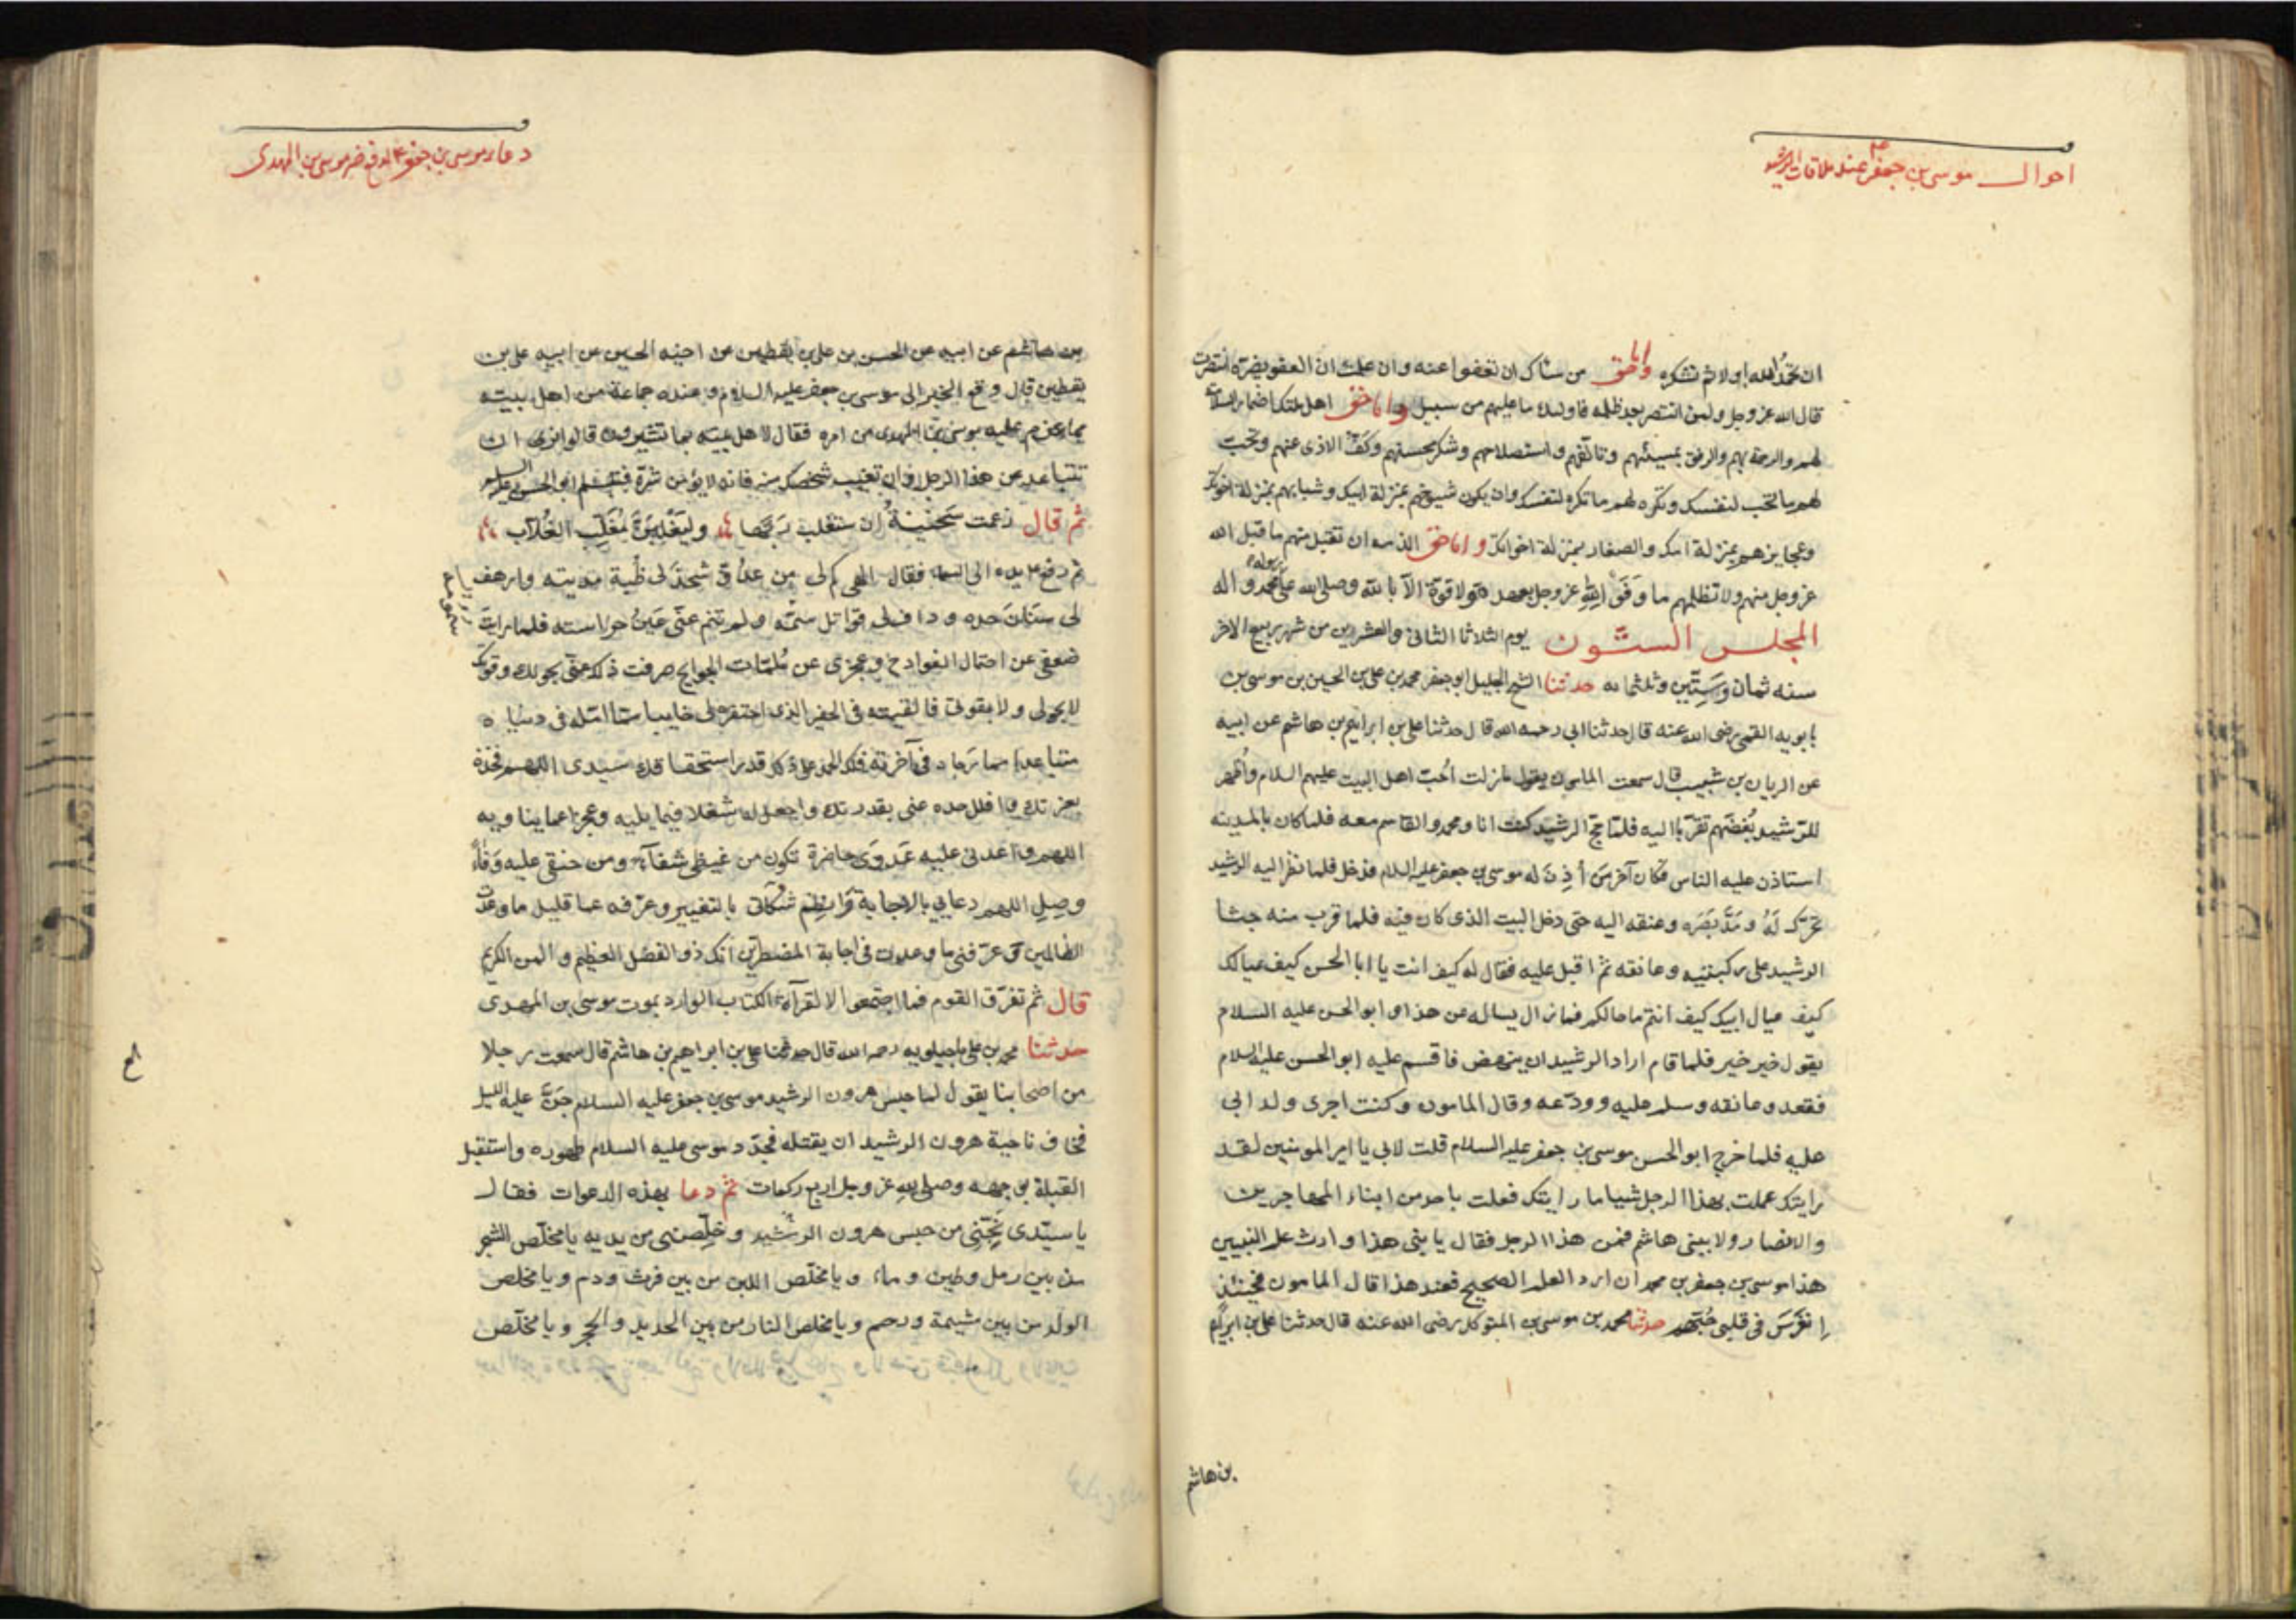 احوال موسى بن جعفر ع عند ملاقات الرشيد
ان تحمد الله اولا ثم تشكره واما حق من ساك ان تعفوا عنه وان علمت ان العفو يضره انتصرت
قال الله عز وجل ولمن انتصر بعد ظلمه فاولئك ما عليهم من سبيل واما حق اهل ملتك اضمار السلامة
لهم والرحمة بهم والرفق بمسيئهم وتالفهم واستصلاحهم وشكر محسنهم وكف الاذى عنهم وتحب
لهم ما تحب لنفسك وتكره لهم ما تكره لنفسك وان يكون شيوخهم بمنزلة ابيك وشبابهم بمنزلة اخوتك
وعجايزهم بمنزلة امك والصغار بمنزلة اخوانك واما حق الذمه ان تقبل منهم ما قبل الله
عز وجل منهم ولا تظلمهم ما وفوا لله عز وجل بعهده ولا قوة الا بالله وصلى الله على رسوله محمد واله
المجلس الستون يوم الثلاثا الثانى والعشرين من شهر ربيع الاخر
سنه ثمان وستين وثلثمائه حدثنا الشيخ الجليل ابو جعفر محمد بن على بن الحسين بن موسى بن
بابويه القمى رضى الله عنه قال حدثنا ابى رحمه الله قال حدثنا على بن ابراهيم بن هاشم عن ابيه
عن الريان بن شبيب قال سمعت المامون يقول ما زلت اُحبّ اهل البيت عليهم السلام واُظهر
للرّشيد بُغضهم تقرّبا اليه فلمّا حج الرشيد كنت انا ومحمد والقاسم معه فلما كان بالمدينه
استاذن عليه الناس فكان آخر مَن أُذِنَ له موسى بن جعفر عليه السلام فدخل فلما نظر اليه الرشيد
تحرّك لَهُ ومَدّ بَصَره وعنقه اليه حتى دخل البيت الذى كان فيه فلما قرب منه جثا
الرشيد على ركبتيه وعانقه ثم اقبل عليه فقال له كيف انت يا ابا الحسن كيف عيالك
كيف عيال ابيك كيف انتم ما حالكم فما زال يساله عن هذا و ابو الحسن عليه السلام
يقول خير خير فلما قام اراد الرشيد ان ينهض فاقسم عليه ابو الحسن عليه السلام
فقعد وعانقه وسلم عليه وودّعه وقال المامون وكنت اجرى ولد ابى
عليه فلما خرج ابو الحسن موسى بن جعفر عليه السلام قلت لابى يا امير المومنين لقد
رايتك عملت بهذا الرجل شيا ما رايتك فعلت باحد من ابناء المهاجرين
والانصار ولا ببنى هاشم فمن هذا الرجل فقال يا بنى هذا وارث علم النبيين
هذا موسى بن جعفر بن محمد ان ارد العلم الصحيح فعند هذا قال المامون فحينئذ
انغرس فى قلبى حُبّهم حدثنا محمد بن موسى بن المتوكل رضى الله عنه قال حدثنا على بن ابراهيم
بن هاشم
دعاء موسى بن جعفر ع لدفع ضر موسى بن المهدى
بن هاشم عن ابيه عن الحسن بن على بن يقطين عن اخيه الحسين عن ابيه على بن
يقطين قال وقع الخبر الى موسى بن جعفر عليه السلام وعنده جماعة من اهل بيته
بما عزم عليه موسى بن المهدى من امره فقال لاهل بيته بما تشيرون قالوا نرى ان
تتباعد عن هذا الرجل وان تغيب شخصك منه فانه لا يؤمن شرّه فتبسم ابو الحسن عليه السلم
ثم قال زعمت سَخينةُ ان ستغلب رَبّها وليَغْلِبَنّ مُغلّب الغُلاّب
ثم رفع ع يده الى السما فقال الهى كم من عدُوٍّ شحذ لى ظُبة مديته وارهف
لى سنان حده وداف لى قواتل سمُومه ولم تنم عنّى عَينُ حراسته فلما رايت
ضعفى عن احتمال الفوادح وعجزى عن مُلمّات الجوايح صرفت ذلك عنّى بحولك وقوتك
لا بحولى ولا بقوتى فالقيته فى الحفير الذى احتفره لى خايبا مما امّله فى دنياه
متباعدا مما رجاه فى آخرته فلك الحمد على ذلك قدر استحقاقك سيدى اللهم فخذه
بعزتك وافلل حده عنى بقدرتك واجعل له شغلا فيما يليه وعجزا عما يناويه
اللهم واعدنى عليه عَدوَى حاضرة تكون من غيظى شفآء ومن حنقى عليه وَفاءً
وصِلِ اللهم دعايى بالاجابة وانظِم شكاتى بالتغيير وعرّفه عما قليل ما وعدت
الظالمين وعرّفنى ما وعدت فى اجابة المضطرّين انّك ذو الفضل العظيم والمن الكريم
قال ثم تفرّق القوم فما اجتمعوا الا لقرآءة الكتاب الوارد بموت موسى بن المهدى
حدثنا محمد بن على ماجيلويه رحمه الله قال حدثنا على بن ابراهيم بن هاشم قال سمعت رجلا
من اصحابنا يقول لما حبس هرون الرشيد موسى بن جعفر عليه السلام جنّ عليه الليل
فخاف ناحية هرون الرشيد ان يقتله فجدّد موسى عليه السلام طهوره واستقبل
القبلة بوجهه وصلى لله عز وجل اربع ركعات ثم دعا بهذه الدعوات فقال
يا سيّدى نَجّنى من حبس هرون الرشيد وخلّصنى من يديه يا مخلّص الشجر
من بين رمل وطين وماء ويا مخلّص اللبن من بين فرث ودم ويا مخلص
الولد من بين مشيمة ورحم ويا مخلص النار من بين الحديد والحجر ويا مخلّص